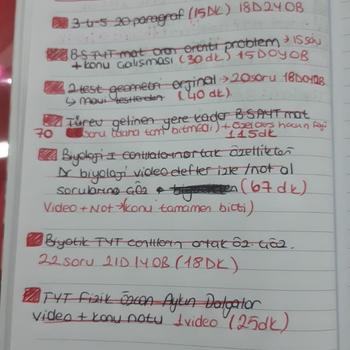 3-4-5 20 paragraf (15DK) 18D2Y0B
BS TYT mat oran orantı problem → 15 soru
+ konu çalışması (30 dk) 15D0Y0B
2 test geometri orginal → 20 soru 18D0Y2B
↳ mavi testlerden (40 dk)
Türev gelinen yere kadar BS AYT mat
70 soru (konu tam bitmedi) +
115dk
Biyoloji 1 canlıların ortak özellikleri
Dr biyoloji video defter izle / not al
sorularını çöz (67 dk)
Video + Not → konu tamamen bitti)
Biyotik TYT canlıların ortak öz. çöz.
22 soru 21D 1Y 0B (18DK)
TYT Fizik Özcan Aykın Dalgalar
video + konu notu 1 video (25dk)